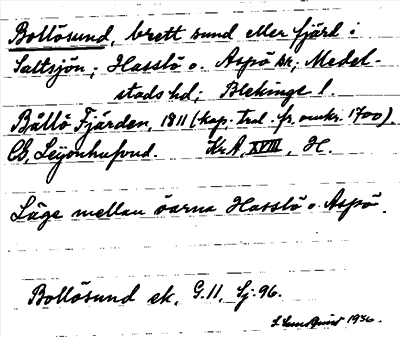 Bollösund, brett sund eller fjärd i
Saltsjön; Hasslö o. Aspö sr; Medel-
stads hd; Blekinge l.
Bållö Fjärden, 1811 (kop. trol. fr. omkr. 1700).
CG, Leijonhufvud. KrA, XVIII, H.
Läge mellan öarna Hasslö o. Aspö.
Bollösund ek. G.11, Sj. 96.
1936.